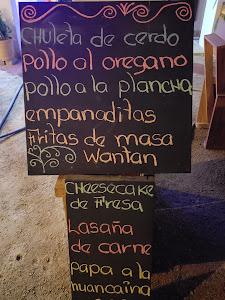 Chuleta de cerdo
pollo al oregano
pollo a la plancha
empanaditas
fritas de masa
wantan
Cheesecake
de fresa
Lasaña
de carne
papa a la
huancaina